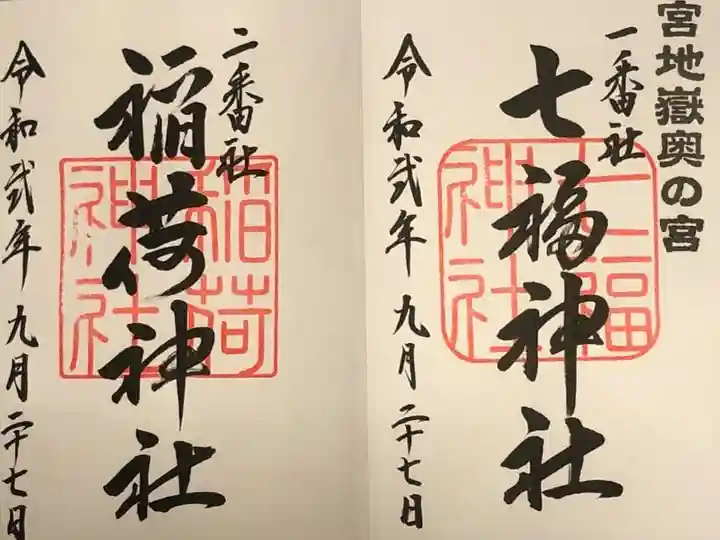 宮地嶽奥の宮
一番社
七福神社
七福
神社
令和弐年九月二十七日
二番社
稲荷神社
稲荷
神社
令和弐年九月二十七日